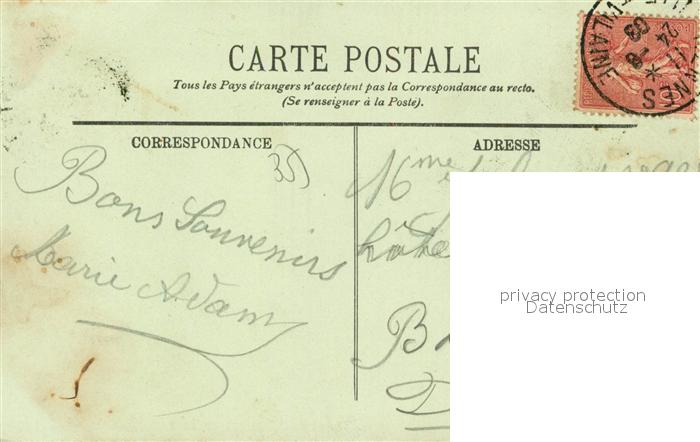 CARTE POSTALE
Tous les Pays étrangers n'acceptent pas la Correspondance au recto.
(Se renseigner à la Poste).
CORRESPONDANCE
35
Bons Souvenirs
Marie Adam
ADRESSE
Mme
B
D
privacy protection
Datenschutz
VILAINE
24 -8
03